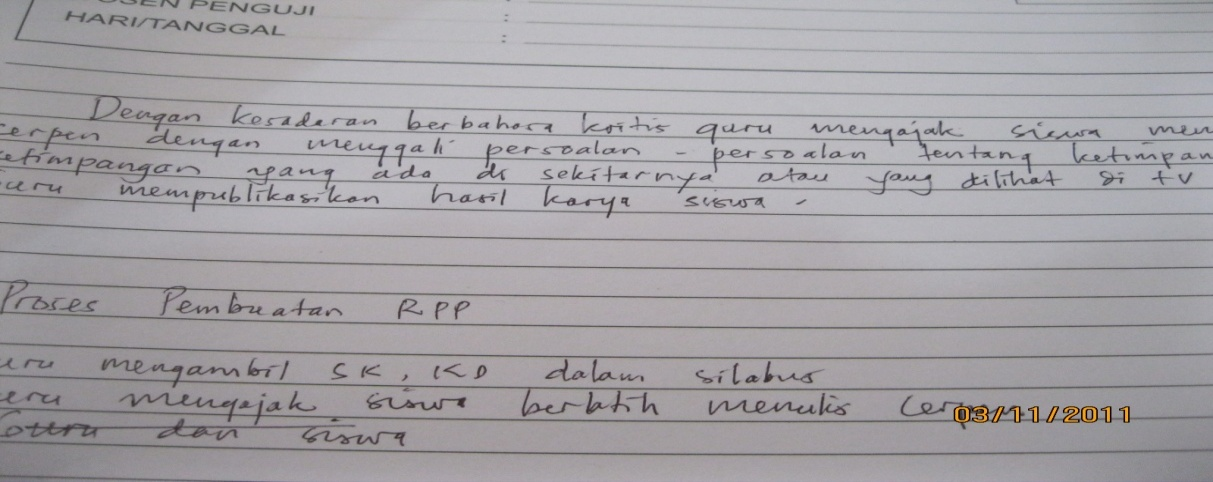 SEN PENGUJI :
HARI/TANGGAL :
Dengan kesadaran berbahasa kritis guru mengajak siswa men
cerpen dengan menggali persoalan - persoalan tentang ketimpan
ketimpangan yang ada di sekitarnya atau yang dilihat di tv
guru mempublikasikan hasil karya siswa -
Proses Pembuatan RPP
uru mengambil SK, KD dalam silabus
uru mengajak siswa berlatih menulis
Guru dan siswa
03/11/2011